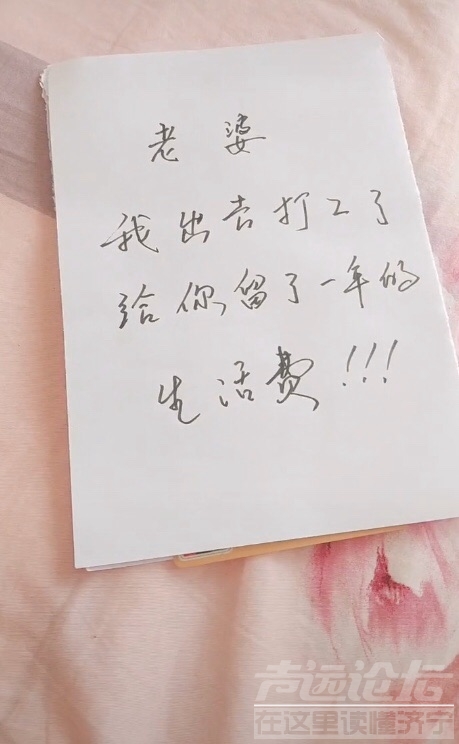 老婆
我出去打工了
给你留了一年的
生活费!!!
声远论坛
在这里读懂济宁